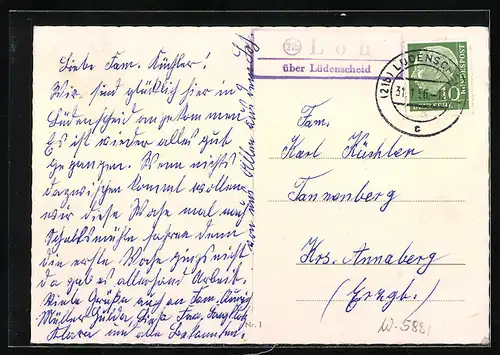 Liebe Fam. Küchler!
Wir sind glücklich hier in
Lüdenscheid angekommen
Es ist wieder alles gut
gegangen. Wenn nichts
dazwischen kommt wollen
wir diese Woche mal nach
Schalksmühle fahren denn
die erste Woche gings nicht
da gab es allerhand Arbeit.
Viele Grüße auch an Fam.
Müller Hulda,
und alle Bekannten.
(21b) Loh
über Lüdenscheid
(21b) LÜDENSCH
31.1.56
c
10
DEUTSCHE
BUNDESPOST
Fam.
Karl Küchler
Tannenberg
Krs. Annaberg
(Erzgb.)
Nr. 1
W-588